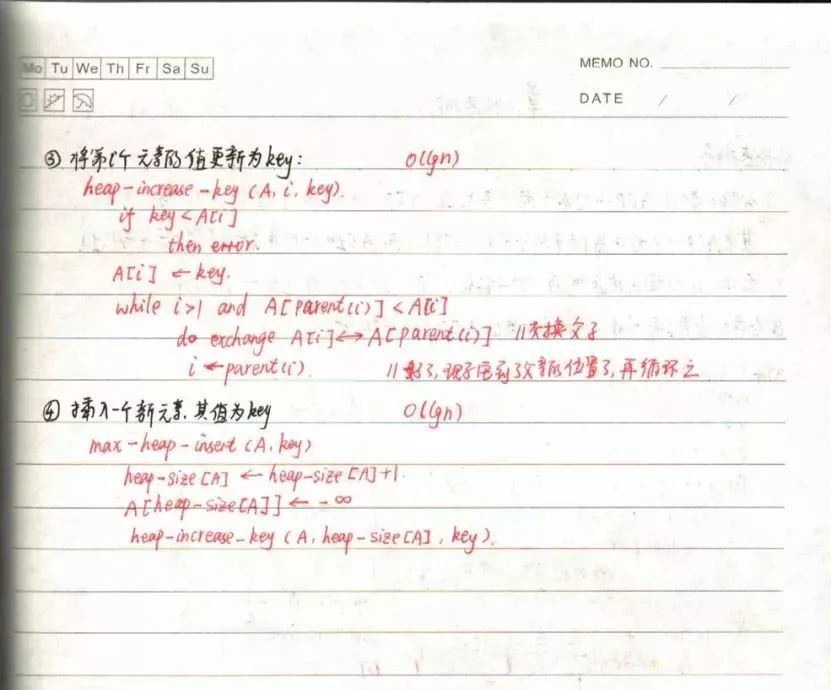 Mo Tu We Th Fr Sa Su
MEMO NO.
DATE / /
③ 将第i个元素的值更新为key: O(lgn)
heap-increase-key (A, i, key)
if key < A[i]
then error.
A[i] ← key.
while i>1 and A[parent(i)] < A[i]
do exchange A[i]↔A[parent(i)] //交换父子
i ← parent(i). //好了,现子在到了父亲的位置了,再循环之
④ 插入一个新元素,其值为key O(lgn)
max-heap-insert (A, key)
heap-size[A] ← heap-size[A]+1.
A[heap-size[A]] ← -∞
heap-increase-key (A, heap-size[A], key).